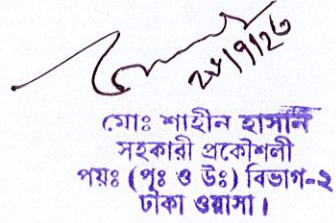 ২৮/৭/২৩
মোঃ শাহীন হাসান
সহকারী প্রকৌশলী
পয়ঃ (পূঃ ও উঃ) বিভাগ-২
ঢাকা ওয়াসা।